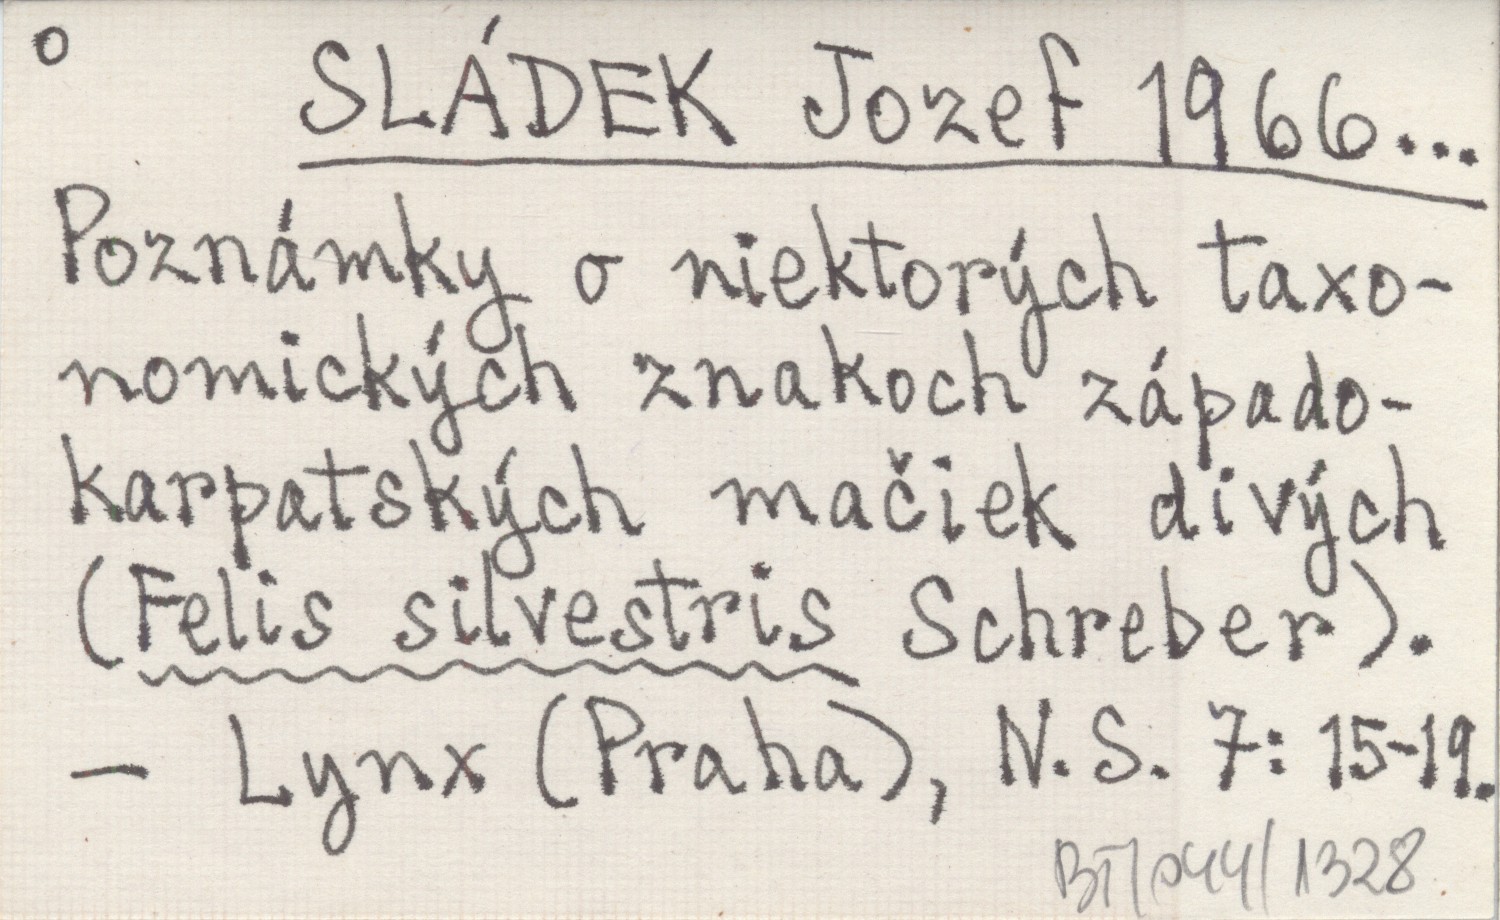 o
SLÁDEK Jozef 1966...
Poznámky o niektorých taxo-
nomických znakoch západo-
karpatských mačiek divých
(Felis silvestris Schreber).
— Lynx (Praha), N.S. 7: 15-19.
BT/044/1328